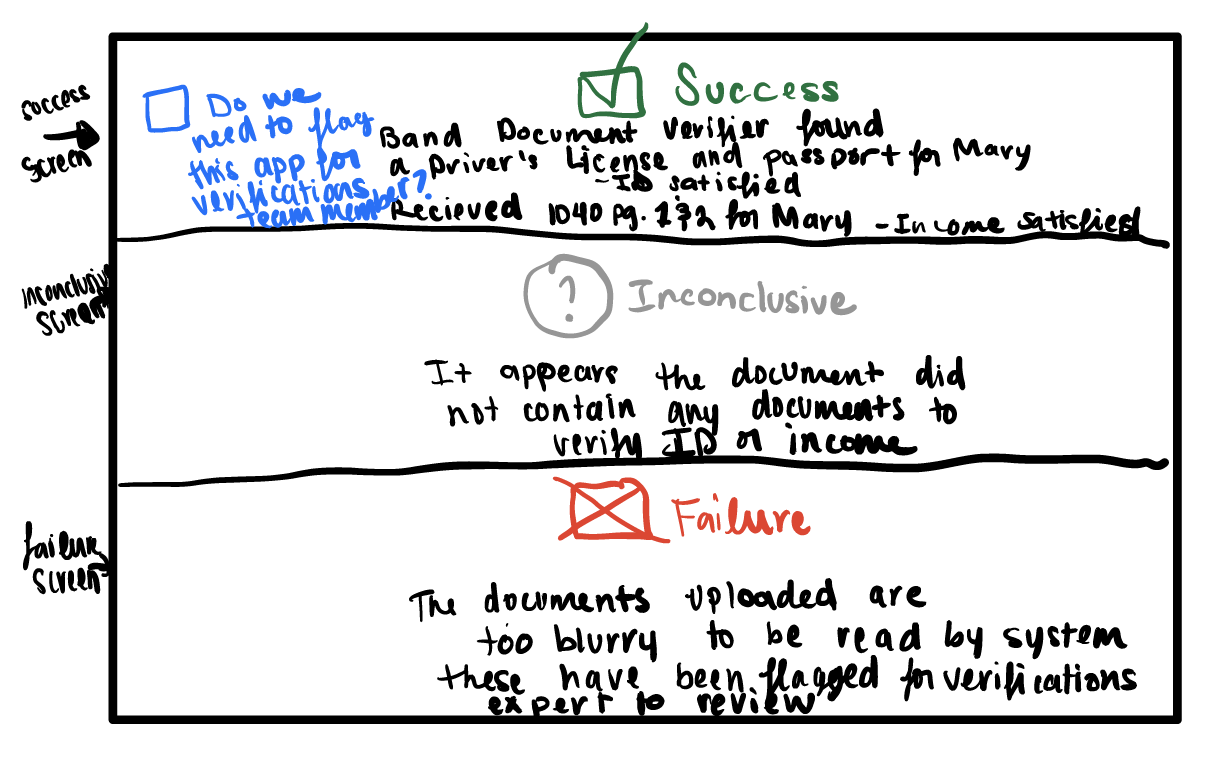 success
screen
Do we
need to flag
this app for
verifications
team member?
Success
Band Document Verifier found
a Driver's License and passport for Mary
- ID satisfied
Recieved 1040 pg. 1 & 2 for Mary - Income satisfied
inconclusive
screen
? Inconclusive
It appears the document did
not contain any documents to
verify ID or income
failure
screen
Failure
The documents uploaded are
too blurry to be read by system
these have been flagged for verifications
expert to review